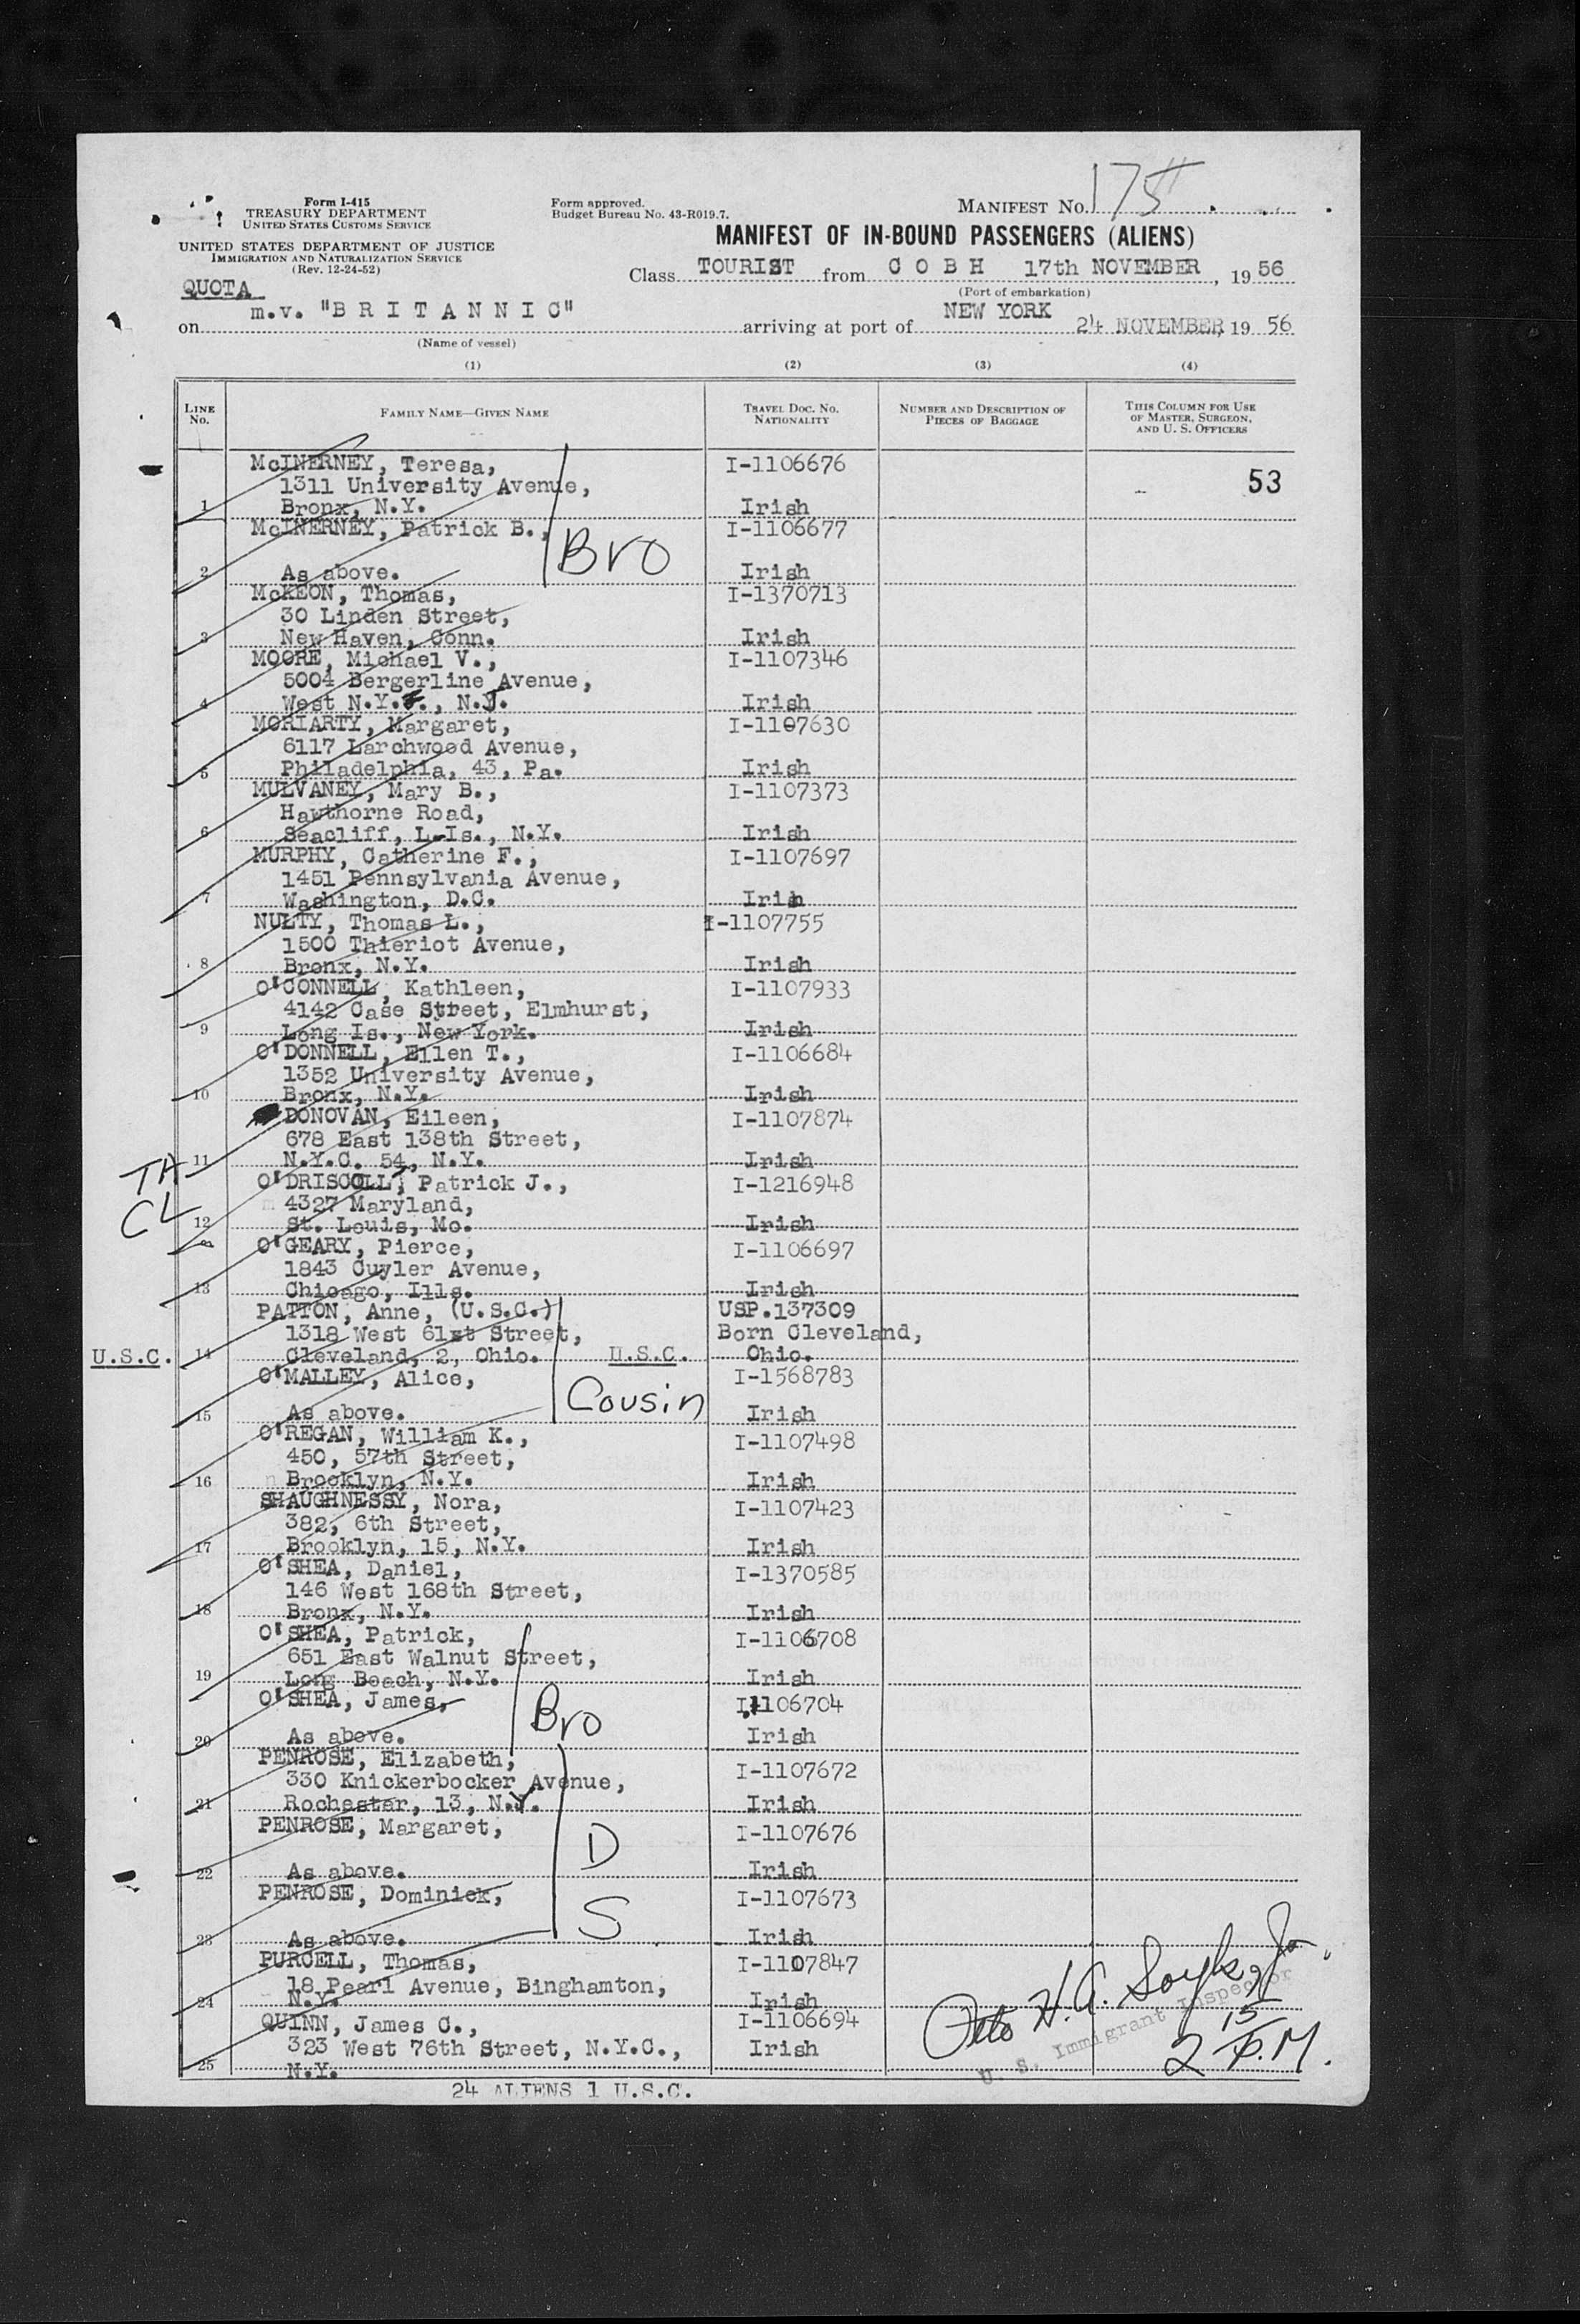 Form I-415
TREASURY DEPARTMENT
UNITED STATES CUSTOMS SERVICE
UNITED STATES DEPARTMENT OF JUSTICE
IMMIGRATION AND NATURALIZATION SERVICE
(Rev. 12-24-52)
Form approved.
Budget Bureau No. 43-R019.7.
MANIFEST No. 175
MANIFEST OF IN-BOUND PASSENGERS (ALIENS)
Class TOURIST from C O B H 17th NOVEMBER, 1956
(Port of embarkation)
QUOTA
on m.v. "B R I T A N N I C" arriving at port of NEW YORK 24 NOVEMBER, 19 56
(Name of vessel)
(1) (2) (3) (4)
LINE No. FAMILY NAME—GIVEN NAME TRAVEL DOC. No. NATIONALITY NUMBER AND DESCRIPTION OF PIECES OF BAGGAGE THIS COLUMN FOR USE OF MASTER, SURGEON, AND U. S. OFFICERS
McINERNEY, Teresa, I-1106676
1311 University Avenue, 53
1 Bronx, N.Y. Irish
McINERNEY, Patrick B., I-1106677
Bro
2 As above. Irish
McKEON, Thomas, I-1370713
30 Linden Street,
3 New Haven, Conn. Irish
MOORE, Michael V., I-1107346
5004 Bergerline Avenue,
4 West N.Y., N.J. Irish
MORIARTY, Margaret, I-1107630
6117 Larchwood Avenue,
5 Philadelphia, 43, Pa. Irish
MULVANEY, Mary B., I-1107373
Hawthorne Road,
6 Seacliff, L.Is., N.Y. Irish
MURPHY, Catherine F., I-1107697
1451 Pennsylvania Avenue,
7 Washington, D.C. Irish
NULTY, Thomas L., I-1107755
1500 Thieriot Avenue,
8 Bronx, N.Y. Irish
O'CONNELL, Kathleen, I-1107933
4142 Case Street, Elmhurst,
9 Long Is., New York. Irish
O'DONNELL, Ellen T., I-1106684
1352 University Avenue,
10 Bronx, N.Y. Irish
DONOVAN, Eileen, I-1107874
678 East 138th Street,
TA 11 N.Y.C. 54, N.Y. Irish
O'DRISCOLL, Patrick J., I-1216948
CL 4327 Maryland,
12 St. Louis, Mo. Irish
O'GEARY, Pierce, I-1106697
1843 Cuyler Avenue,
13 Chicago, Ills. Irish
PATTON, Anne, (U.S.C.) USP.137309
1318 West 61st Street, Born Cleveland,
U.S.C. 14 Cleveland, 2, Ohio. U.S.C. Ohio.
O'MALLEY, Alice, I-1568783
Cousin
15 As above. Irish
O'REGAN, William K., I-1107498
450, 57th Street,
16 Brooklyn, N.Y. Irish
SHAUGHNESSY, Nora, I-1107423
382, 6th Street,
17 Brooklyn, 15, N.Y. Irish
O'SHEA, Daniel, I-1370585
146 West 168th Street,
18 Bronx, N.Y. Irish
O'SHEA, Patrick, I-1106708
651 East Walnut Street,
19 Long Beach, N.Y. Irish
O'SHEA, James, I-1106704
Bro
20 As above. Irish
PENROSE, Elizabeth, I-1107672
330 Knickerbocker Avenue,
21 Rochester, 13, N.Y. Irish
PENROSE, Margaret, I-1107676
D
22 As above. Irish
PENROSE, Dominick, I-1107673
S
23 As above. Irish
PURCELL, Thomas, I-1107847
18 Pearl Avenue, Binghamton,
24 N.Y. Irish
QUINN, James C., I-1106694
323 West 76th Street, N.Y.C., Irish
25 N.Y.
Otto H.A. Jr.
U. S. Immigrant Inspector
2 15 P.M.
24 ALIENS 1 U.S.C.